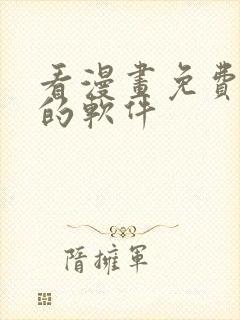 看漫畫免費
的軟件
隋擁軍